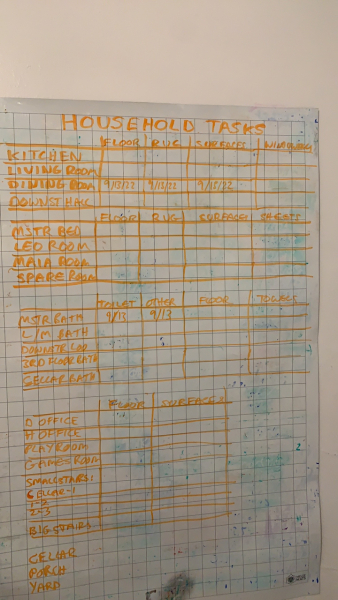 HOUSEHOLD TASKS
FLOOR RUG SURFACES WINDOWS
KITCHEN
LIVING ROOM
DINING ROOM 9/13/22 9/13/22 9/15/22
DOWNST HALL
FLOOR RUG SURFACES SHEETS
MSTR BED
LEO ROOM
MAIA ROOM
SPARE ROOM
TOILET OTHER FLOOR TOWELS
MSTR BATH 9/13 9/13
L/M BATH
DOWNSTR LOO
3RD FLOOR BATH
CELLAR BATH
FLOOR SURFACES
D OFFICE
H OFFICE
PLAYROOM
GAMES ROOM
SMALL STAIRS:
CELLAR-1
1-2
2-3
BIG STAIRS
CELLAR
PORCH
YARD